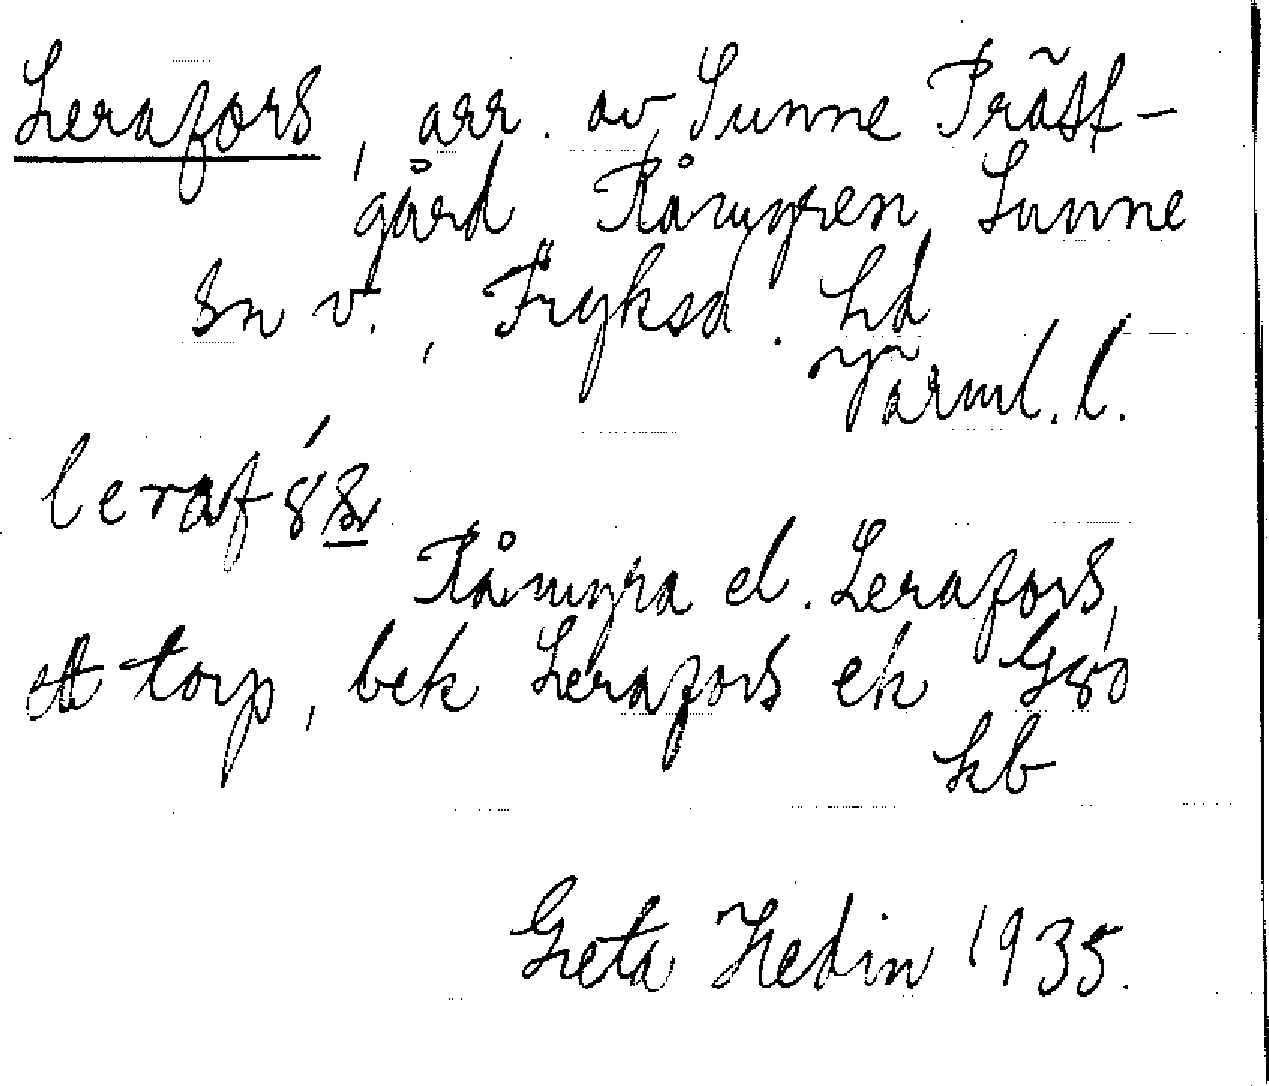 Lerafors, arr. av Sunne Präst-
gård, Råmyren, Sunne
sn v., Fryksd. hd
Värml. l.
leraf
Råmyra el. Lerafors,
ett torp, bek Lerafors ek G80
kb
Greta Hedin 1935.